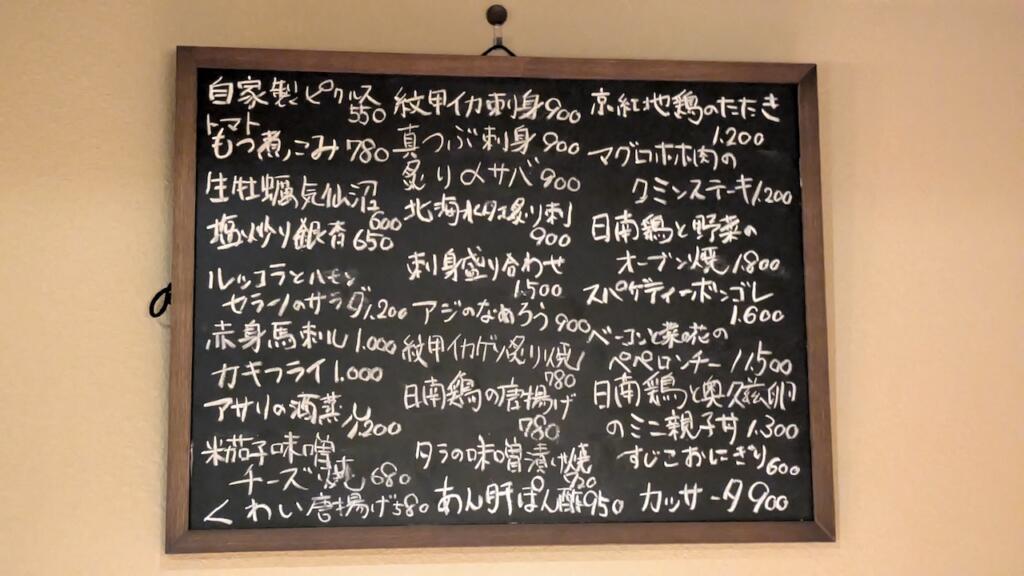 自家製ピクルス
550
トマト
もつ煮こみ780
生牡蠣気仙沼
600
塩炒り銀杏650
ルッコラとハモン
セラーノのサラダ1.200
赤身馬刺し1.000
カキフライ1.000
アサリの酒蒸し1,200
米茄子味噌
チーズ焼680
くわい唐揚げ580
紋甲イカ刺身900
真つぶ刺身900
炙り〆サバ900
北海水タコ炙り刺
900
刺身盛り合わせ
1.500
アジのなめろう900
紋甲イカゲソ炙り焼
780
日南鶏の唐揚げ
780
タラの味噌漬け焼
920
あん肝ぽん酢950
京紅地鶏のたたき
1.200
マグロホホ肉の
クミンステーキ1,200
日南鶏と野菜の
オーブン焼1.800
スパゲティーボンゴレ
1.600
ベーコンと菜の花の
ペペロンチーノ1,500
日南鶏と奥久慈卵
のミニ親子丼1.300
すじこおにぎり600
カッサータ900